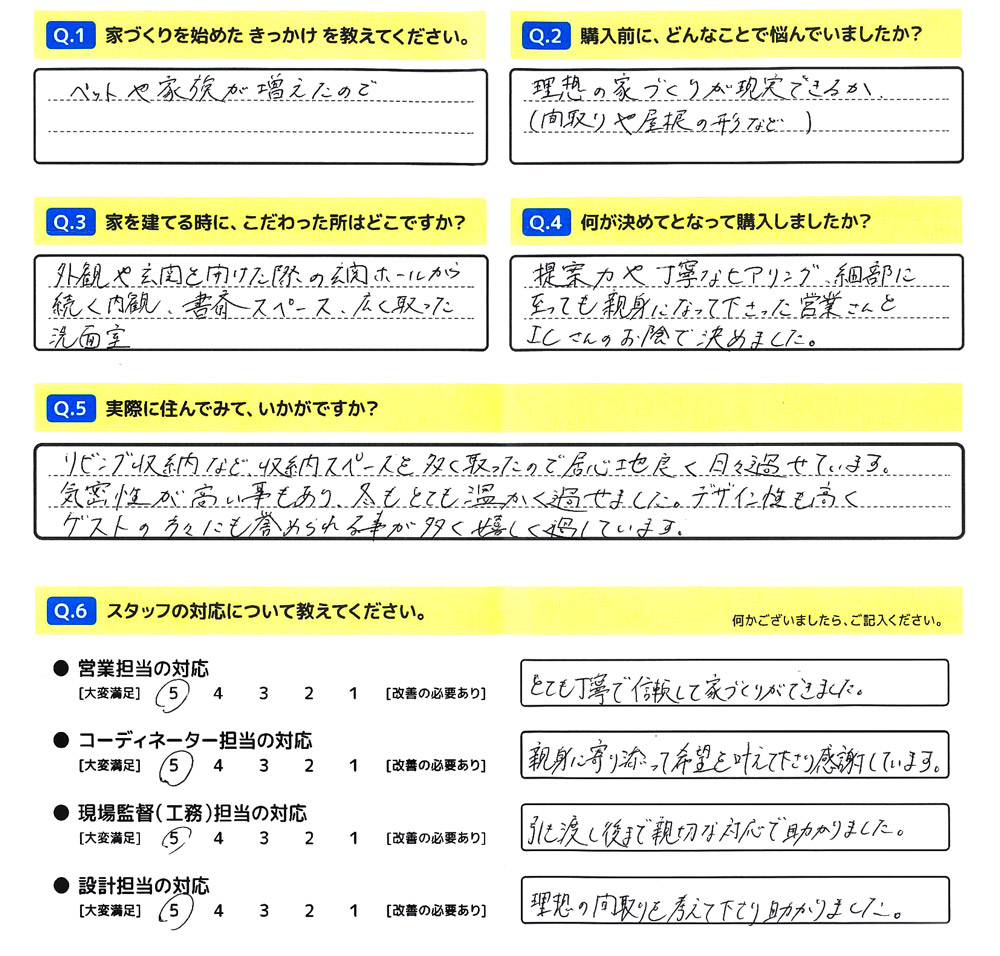 Q.1 家づくりを始めた きっかけ を教えてください。
ペットや家族が増えたので
Q.2 購入前に、どんなことで悩んでいましたか?
理想の家づくりが現実できるか、
(間取りや屋根の形など )
Q.3 家を建てる時に、こだわった所はどこですか?
外観や玄関を開けた際の玄関ホールから
続く内観、書斎スペース、広く取った
洗面室
Q.4 何が決めてとなって購入しましたか?
提案力や丁寧なヒアリング、細部に
至っても親身になって下さった営業さんと
ICさんのお陰で決めました。
Q.5 実際に住んでみて、いかがですか?
リビング収納など、収納スペースを多く取ったので居心地良く日々過せています。
気密性が高い事もあり、冬もとても温かく過せました。デザイン性も高く
ゲストの方々にも誉められる事が多く嬉しく過しています。
Q.6 スタッフの対応について教えてください。
何かございましたら、ご記入ください。
● 営業担当の対応
[大変満足] 5 4 3 2 1 [改善の必要あり]
とても丁寧で信頼して家づくりができました。
● コーディネーター担当の対応
[大変満足] 5 4 3 2 1 [改善の必要あり]
親身に寄り添って希望を叶えて下さり感謝しています。
● 現場監督(工務)担当の対応
[大変満足] 5 4 3 2 1 [改善の必要あり]
引き渡し後まで親切な対応で助かりました。
● 設計担当の対応
[大変満足] 5 4 3 2 1 [改善の必要あり]
理想の間取りを考えて下さり助かりました。